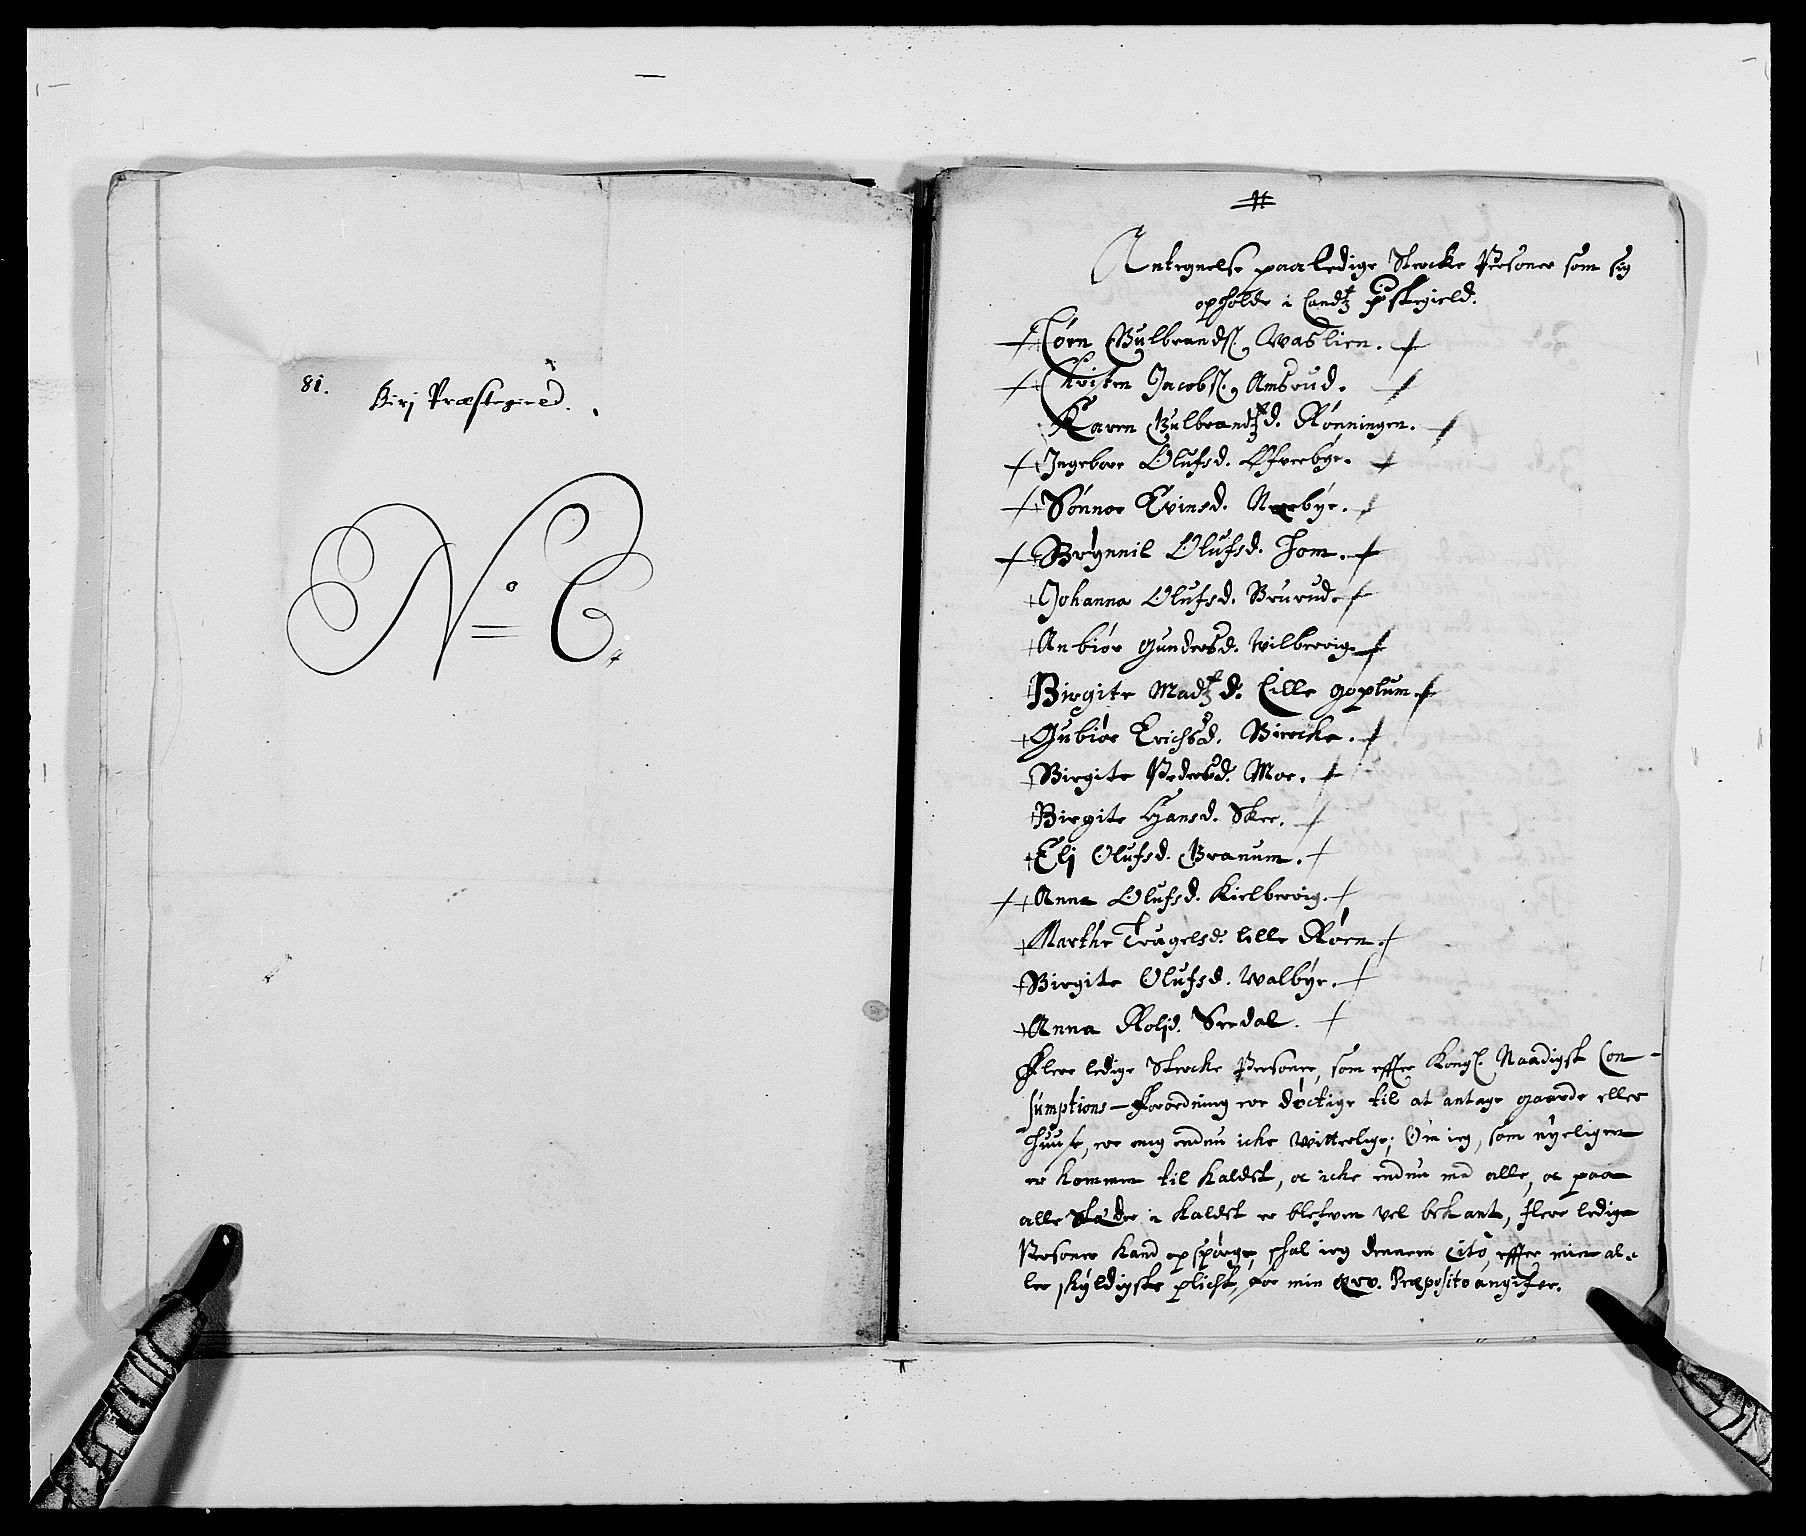 81.
Birj Præstegield.
No = C.
Antegnelse paa ledige Stercke Personer som sig
opholde i Landtz Præstegield.
Jørn Gulbrands. Vaslien.
Christen Jacobs. Amsrud.
Karen Gulbrandtzd. Rønningen.
Ingebore Olufsd. Øfverbye.
Sønnøe Evinsd. Nerbye.
Brynnil Olufsd. Hom.
Johanna Olufsd. Brurud.
Anbiør Gundersd. Wilbervig.
Birgite Madtzd. Lille Goplum.
Gubiør Erichsd. Bircke.
Birgite Pedersd. Moe.
Birgite Hansd. Skee.
Elj Olufsd. Granum.
Anna Olufsd. Kielbervig.
Marthe Trugelsd. lille Røen.
Birgite Olufsd. Walbye.
Anna Rolsd. Sredal.
Flere ledige Stercke Personer, som effter Kongl. Naadigst Con-
sumptions-Forordning ere døctige til at antage gaarde eller
Huuse, ere mig endnu icke witterlige; Om ieg, som nyeligen
er kommen til Kaldet, oc icke endnu med alle, oc paa
alle Stæder i Kaldet er blefven vel bekant, flere ledige
Personer kand opspørge, skal ieg dennem cito, effter min al-
ler skyldigste plict, for min Rev. Præposito angifve.